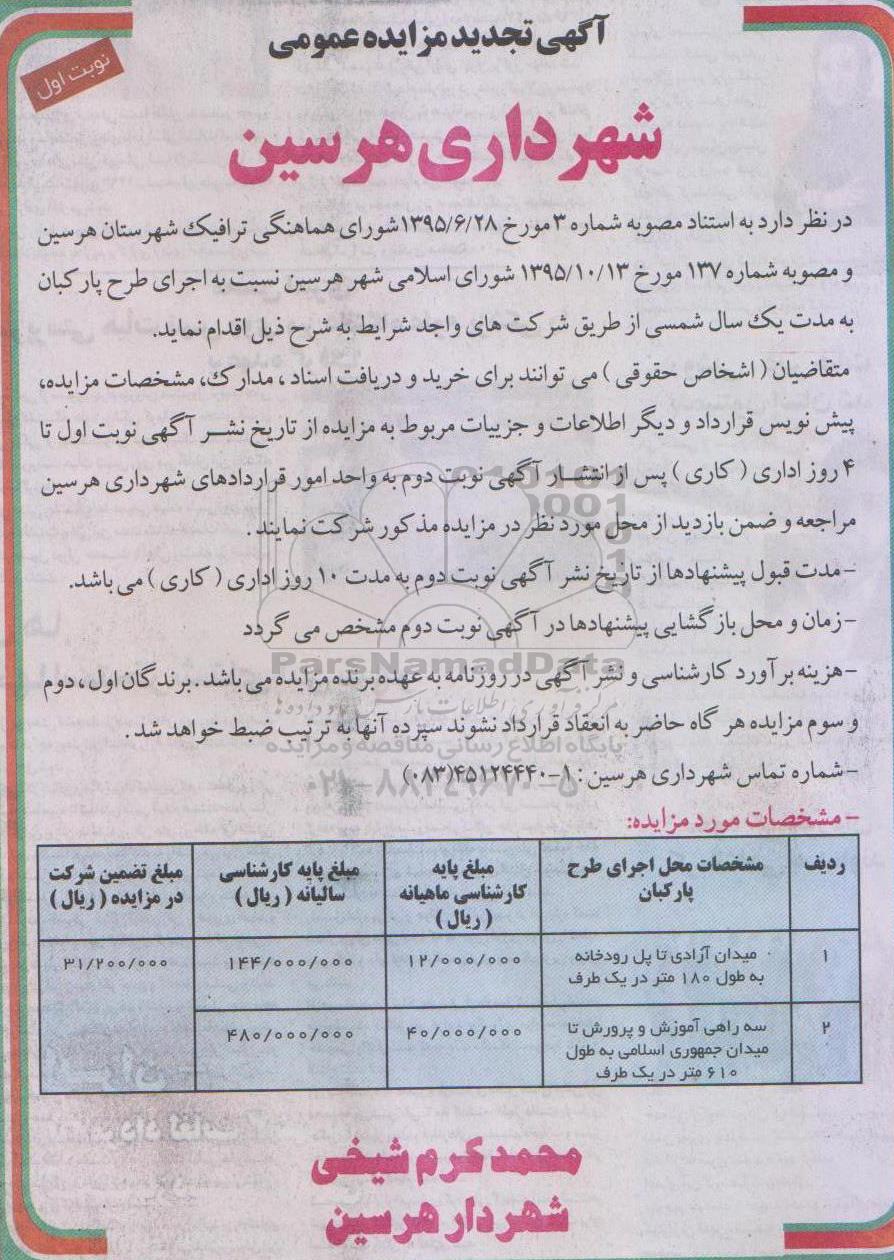 آگهی تجدید مزایده عمومی
نوبت اول
شهرداری هرسین
در نظر دارد به استناد مصوبه شماره ۳ مورخ ۱۳۹۵/۶/۲۸ شورای هماهنگی ترافیک شهرستان هرسین
و مصوبه شماره ۱۳۷ مورخ ۱۳۹۵/۱۰/۱۳ شورای اسلامی شهر هرسین نسبت به اجرای طرح پارکبان
به مدت یک سال شمسی از طریق شرکت های واجد شرایط به شرح ذیل اقدام نماید.
متقاضیان ( اشخاص حقوقی ) می توانند برای خرید و دریافت اسناد ، مدارک، مشخصات مزایده،
پیش نویس قرارداد و دیگر اطلاعات و جزییات مربوط به مزایده از تاریخ نشر آگهی نوبت اول تا
۴ روز اداری ( کاری ) پس از انتشار آگهی نوبت دوم به واحد امور قراردادهای شهرداری هرسین
مراجعه و ضمن بازدید از محل مورد نظر در مزایده مذکور شرکت نمایند .
-مدت قبول پیشنهادها از تاریخ نشر آگهی نوبت دوم به مدت ۱۰ روز اداری ( کاری ) می باشد.
-زمان و محل بازگشایی پیشنهادها در آگهی نوبت دوم مشخص می گردد
-هزینه برآورد کارشناسی و نشر آگهی در روزنامه به عهده برنده مزایده می باشد . برندگان اول ، دوم
و سوم مزایده هر گاه حاضر به انعقاد قرارداد نشوند سپرده آنها به ترتیب ضبط خواهد شد .
-شماره تماس شهرداری هرسین : ۱-۴۵۱۲۴۴۴۰(۰۸۳)
ParsNamadData
پایگاه اطلاع رسانی مناقصه و مزایده
۰۲۱-۸۸۳۴۹۶۷۰-۵
- مشخصات مورد مزایده:
ردیف | مشخصات محل اجرای طرح پارکبان | مبلغ پایه کارشناسی ماهیانه ( ریال ) | مبلغ پایه کارشناسی سالیانه ( ریال ) | مبلغ تضمین شرکت در مزایده ( ریال )
۱ | میدان آزادی تا پل رودخانه به طول ۱۸۰ متر در یک طرف | ۱۲/۰۰۰/۰۰۰ | ۱۴۴/۰۰۰/۰۰۰ | ۳۱/۲۰۰/۰۰۰
۲ | سه راهی آموزش و پرورش تا میدان جمهوری اسلامی به طول ۶۱۰ متر در یک طرف | ۴۰/۰۰۰/۰۰۰ | ۴۸۰/۰۰۰/۰۰۰
محمد کرم شیخی
شهردار هرسین